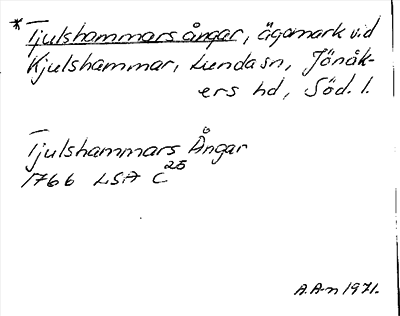 * Tjulshammars ångar, ägomark vid
Kjulshammar, Lunda sn, Jönåk-
ers hd, Söd. l.
Tjulshammars Ångar
1766 LSA C 25
A.A-n 1971.